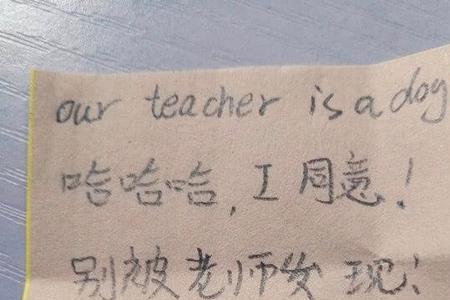 our teacher is a dog
哈哈哈, I 同意!
别被老师发现!